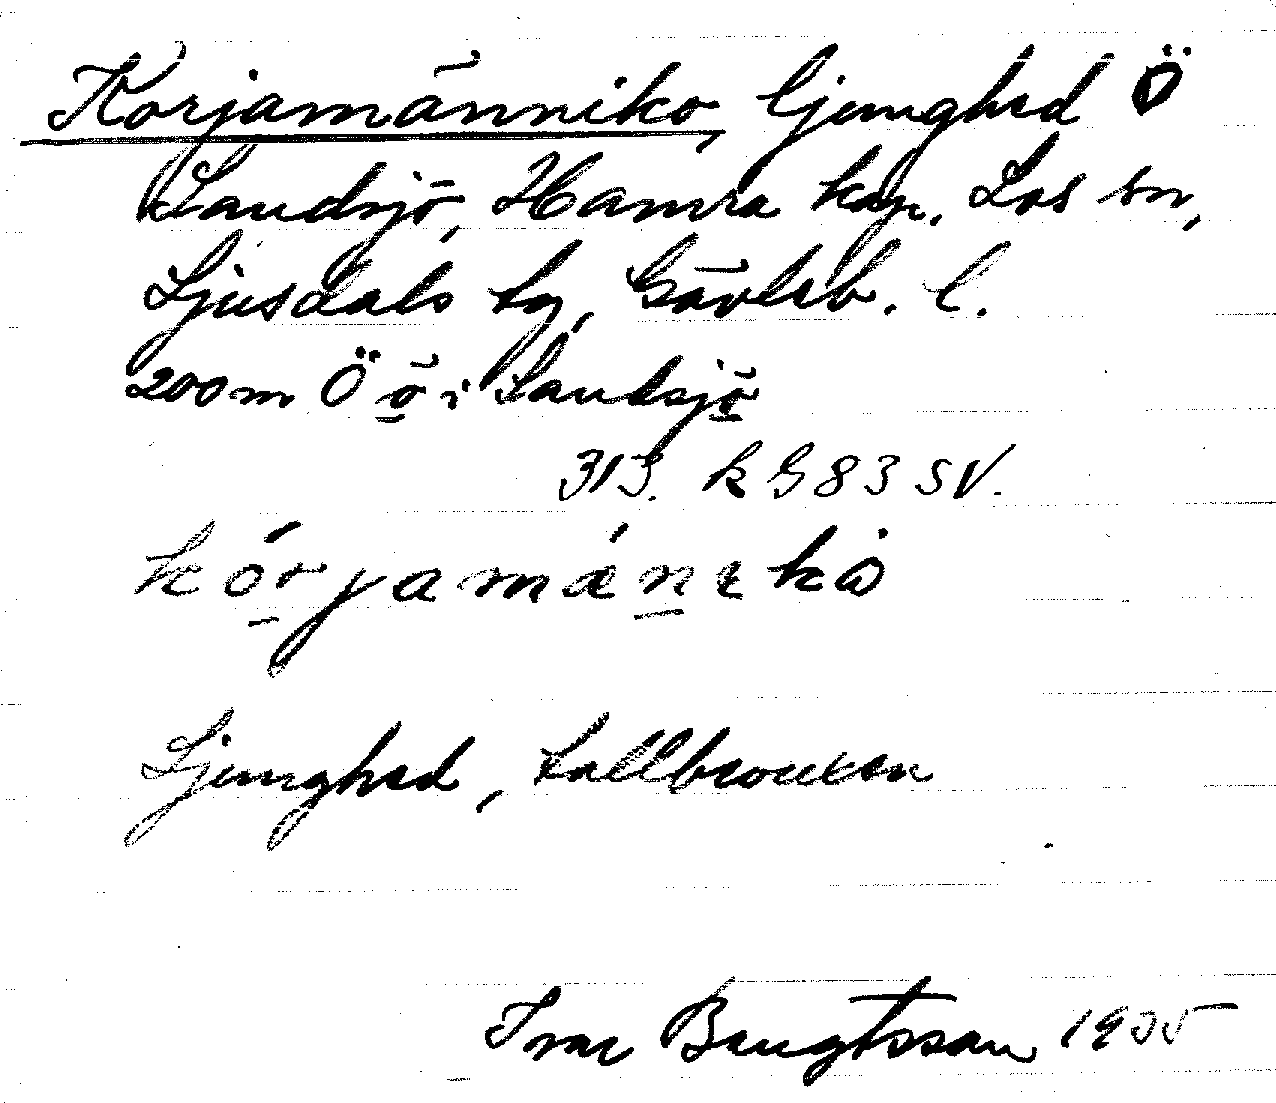 Korjamänniko, ljunghed Ö
Landsjö, Hamra kap., Los sn,
Ljusdals tg, Gävleb. l.
200 m Ö ö i Landsjö
313. k G 83 SV.
Ljunghed, tallbevuxen
Ivar Bengtsson 1935